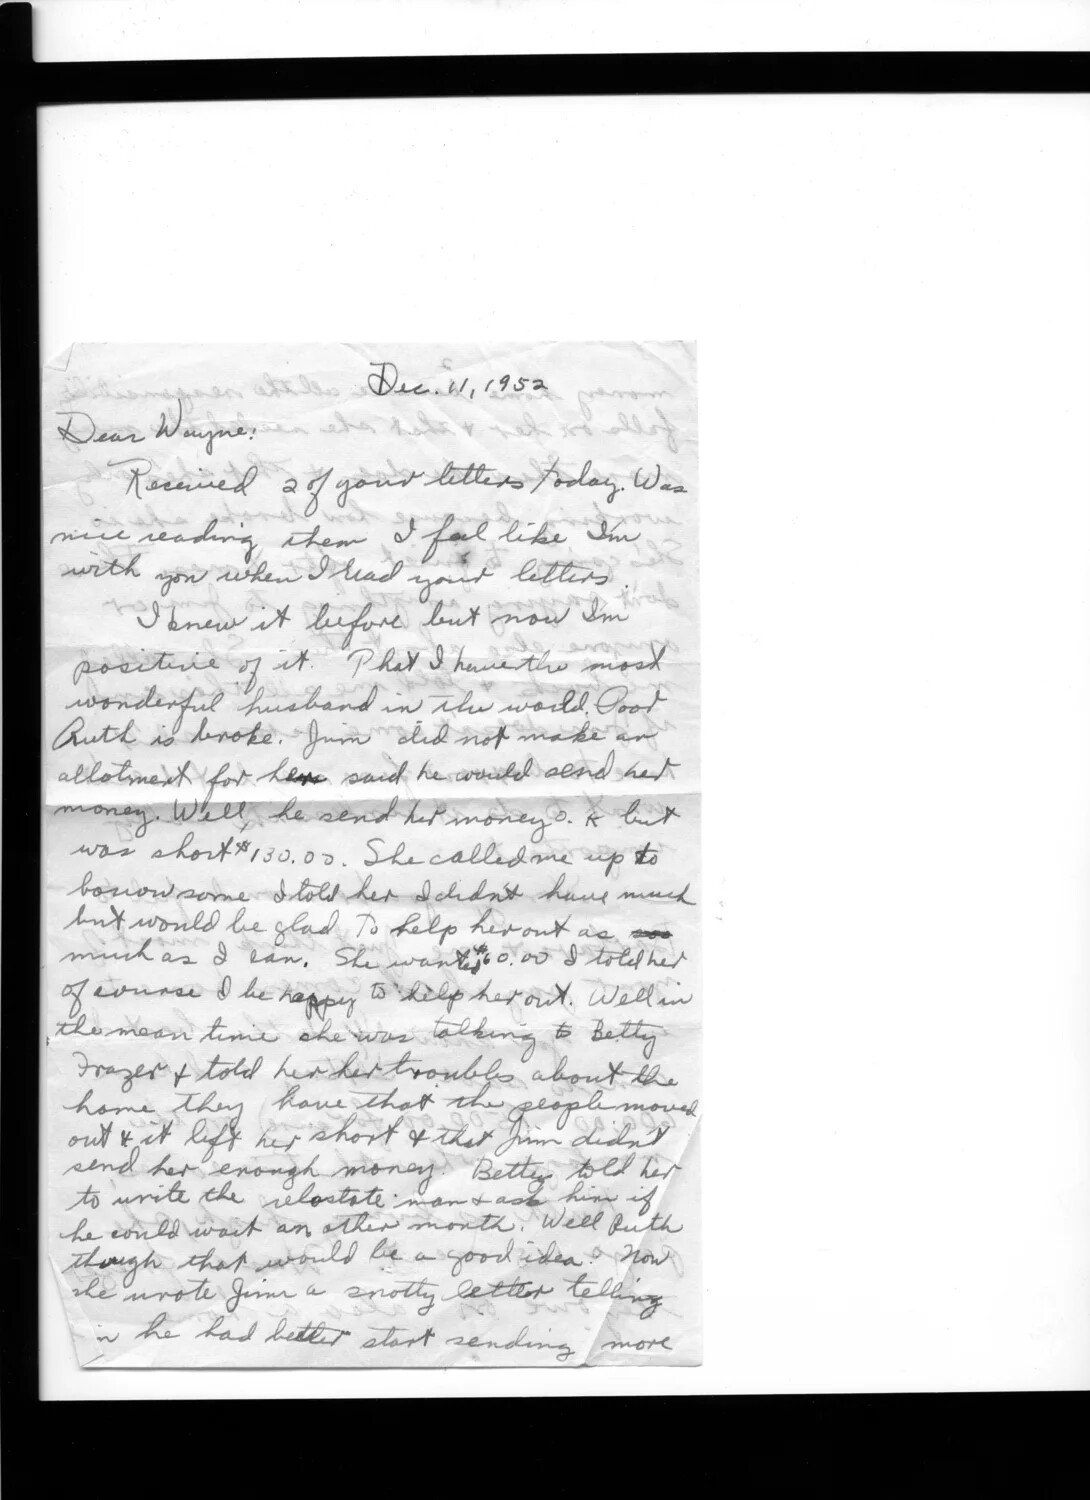 Dec. 11, 1952
Dear Wayne:
Received 2 of your letters today. Was
nice reading them I feel like I'm
with you when I read your letters.
I knew it before but now I'm
positive of it. That I have the most
wonderful husband in the world. Poor
Ruth is broke. Jim did not make an
allotment for her said he would send her
money. Well, he send her money o. k but
was short $130.00. She called me up to
borrow some I told her I didn't have much
but would be glad To help her out as
much as I can. She wanted $60.00 I told her
of course I be happy to help her out. Well in
the mean time she was talking to Betty
Frazer & told her her troubles about the
home they have that the people moved
out & it left her short & that Jim didn't
send her enough money. Betty told her
to write the relostate man & ask him if
he could wait an other month. Well Ruth
though that would be a good idea. Now
she wrote Jim a snotty letter telling
in he had better start sending more